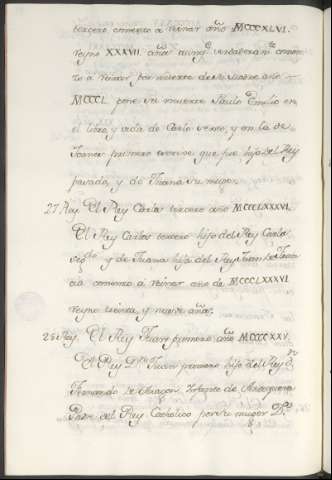 tercero comenso a reinar año MCCCXLVI.
reyno XXXVII. años aunq.e verdadera m.te comen
to a reinar por muerte de su madre año
MCCCL. pone su muerte Paulo Emilio en
el libro, y vida de Carlo sexto, y en la de
Joanes primero escrive que fue hijo del Rey
pasado, y de Juana su muger.
27 Rey. El Rey Carlo tercero año MCCCLXXXVI.
El Rey Carlos tercero hijo del Rey Carlo
seg.do y de Juana hija del Rey Juan de Fran
cia comenso a reinar año de MCCCLXXXVI
reyno treinta, y nueve años.
28 Rey. El Rey Juan primero año MCCCCXXV.
El Rey D.n Juan primero hijo del Rey D.n
Fernando de Aragon, Infante de Antequera
Padre del Rey Catholico por su muger D.ª